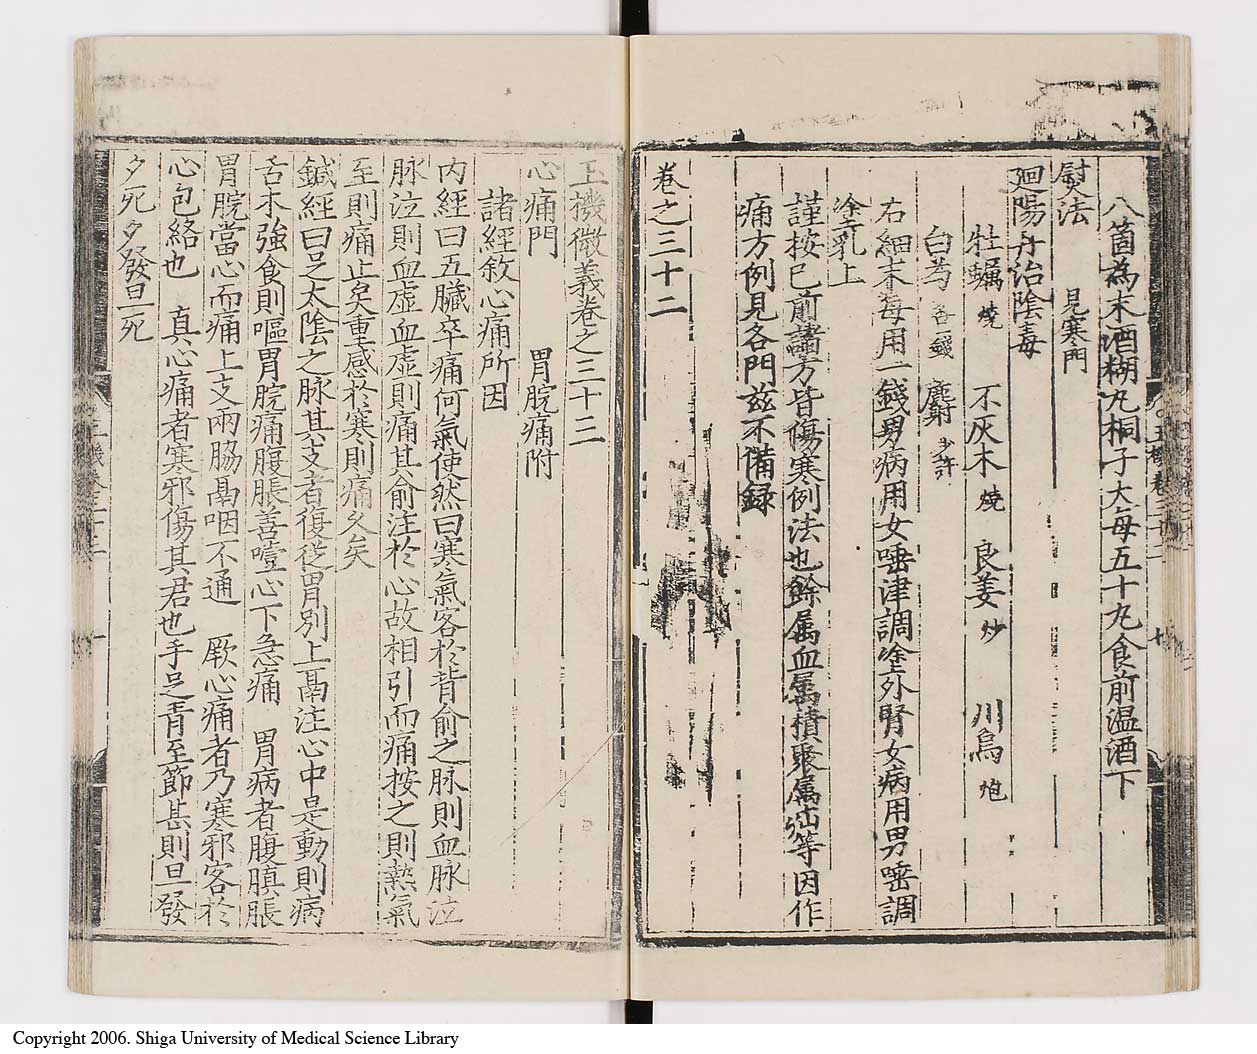 八箇為末酒糊丸桐子大每五十丸食前温酒下
熨法　見寒門
廻陽丹治陰毒
牡蠣燒　不灰木燒　良姜炒　川烏炮
白芍各一錢　麝少許
右細末每用一錢男病用女唾津調塗外腎女病用男唾調
塗乳上
謹按已前諸方皆傷寒例法也餘属血属積聚属疝等因作
痛方例見各門玆不備録
卷之三十二
玉機微義卷之三十三
心痛門　胃脘痛附
諸經敘心痛所因
内經曰五臟卒痛何氣使然曰寒氣客於背俞之脉則血脉泣
脉泣則血虚血虚則痛其俞注於心故相引而痛按之則熱氣
至則痛止矣重感於寒則痛久矣
鍼經曰足太陰之脉其支者復從胃別上鬲注心中是動則病
舌本強食則嘔胃脘痛腹脹善噫心下急痛　胃病者腹䐜脹
胃脘當心而痛上支兩脇鬲咽不通　厥心痛者乃寒邪客於
心包絡也　真心痛者寒邪傷其君也手足青至節甚則旦發
夕死夕發旦死
Copyright 2006. Shiga University of Medical Science Library